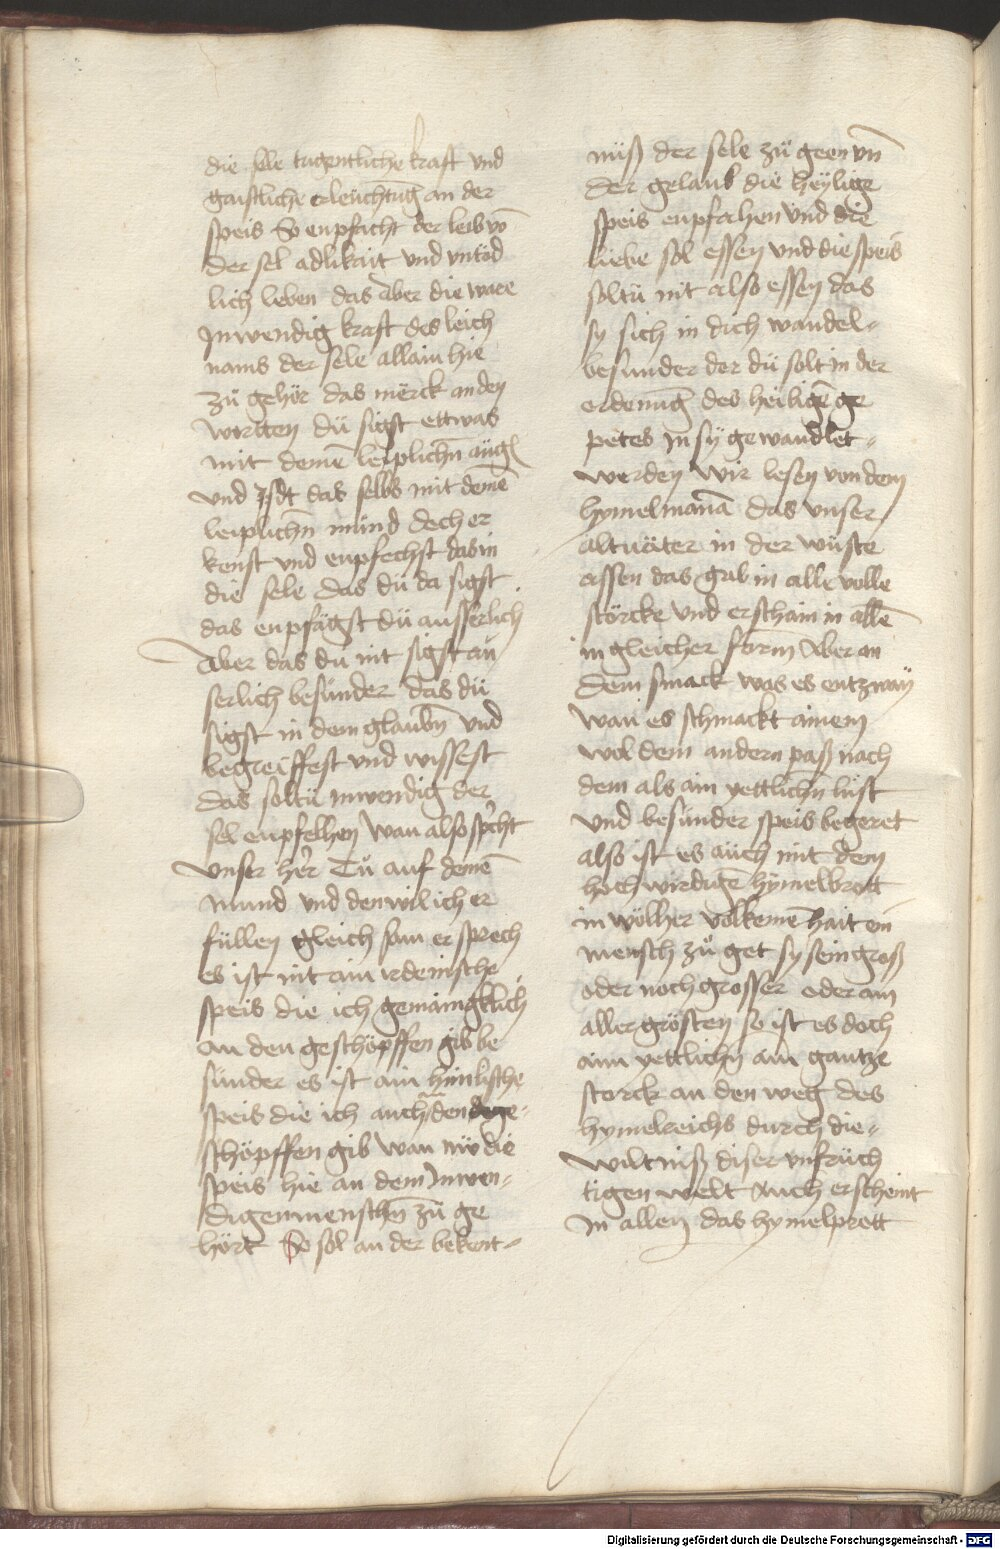 die sele tugentliche kraft vnd
gaistliche erleuchtūg an der
speis So enpfacht der leib vō
der sel adlikait vnd vntöd
lich leben das Aber die ware
Inwendig kraft des leich
nams der sele allain hie
zů gehör das merck an den
worten dü sigst ettwas
mit deinē leiplichn̄ aug
vnd Isdt das selbs mit deinē
leiplichn̄ mund doch er
kenst vnd enpfechst das in
die sele das dü da sigst
das enpfägst dü ausserlich
Aber das du nit sigst au
serlich besünder das dü
sigst in dem glaubn̄ vnd
begreiffest vnd wissest
das soltü inwendig der
sel enpfelhen wan also spricht
vnser her Tů auf deinē
mund vnd den wil ich er
füllen gleich sam er sprech
es ist nit ain irdenische
speis die ich gemaingklich
an den geschöpffen gib be
sünder es ist ain himlische
speis die ich auch den
schöpffen gib wan nü die
speis hie an dem Inwen-
digen menschn̄ zü ge
hört So sol an der bekent-
nüß der sele zů geen vn̄
der gelaub die heÿlige
speis enpfahen vnd die
liebe sol essen vnd die speis
soltü nit also essen das
sy sich in dich wandel-
besunder der dü solt in der
ordenūg des heiligē ge
petes In sÿ gewandlet-
werden wir lesen von dem
hymelmanā das vnser
altuäter in der wüste
assen das gab in alle volle
störcke vnd erschain in allē
in gleicher form Aber an
dem smack was es entzwaÿ
wan es schmackt ainem
wol dem andern paß nach
dem als ain yettlichn̄ lüst
vnd besünder speis begeret
also ist es auch mit dem
hochwirdigē hÿmelbrott
in wölher volkemēhait ein
mensch zů get sy sein groß
oder noch grosser oder am
aller grösten so ist es doch
aim yettlichn̄ ain gantze
storck an den weg des
hymelreichs durch die-
wiltniß diser vnfrüch
tigen welt Auch erscheint
in allen das hymelprott
Digitalisierung gefördert durch die Deutsche Forschungsgemeinschaft - DFG